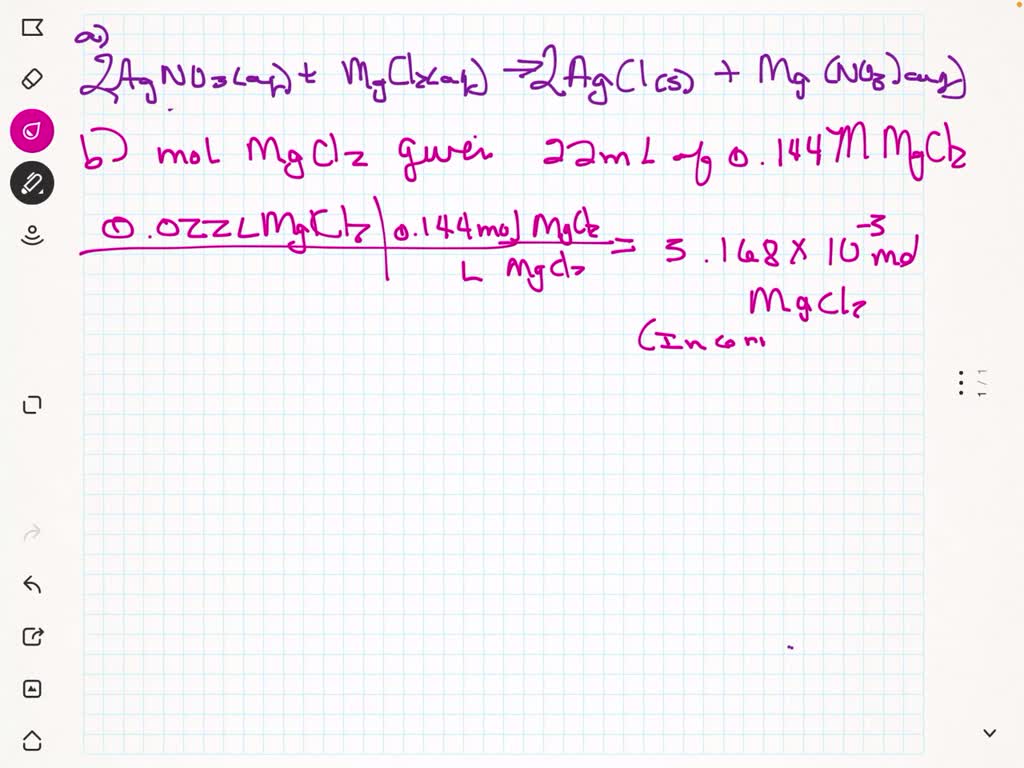 a)
2AgNO3(aq) + MgCl2(aq) → 2AgCl(s) + Mg(NO3)(aq)
b) mol MgCl2 given 22mL of 0.144M MgCl2
0.022L MgCl2 | 0.144 mol MgCl2 = 3.168 x 10^-3 mol
L MgCl2
MgCl2
(In com
1/1